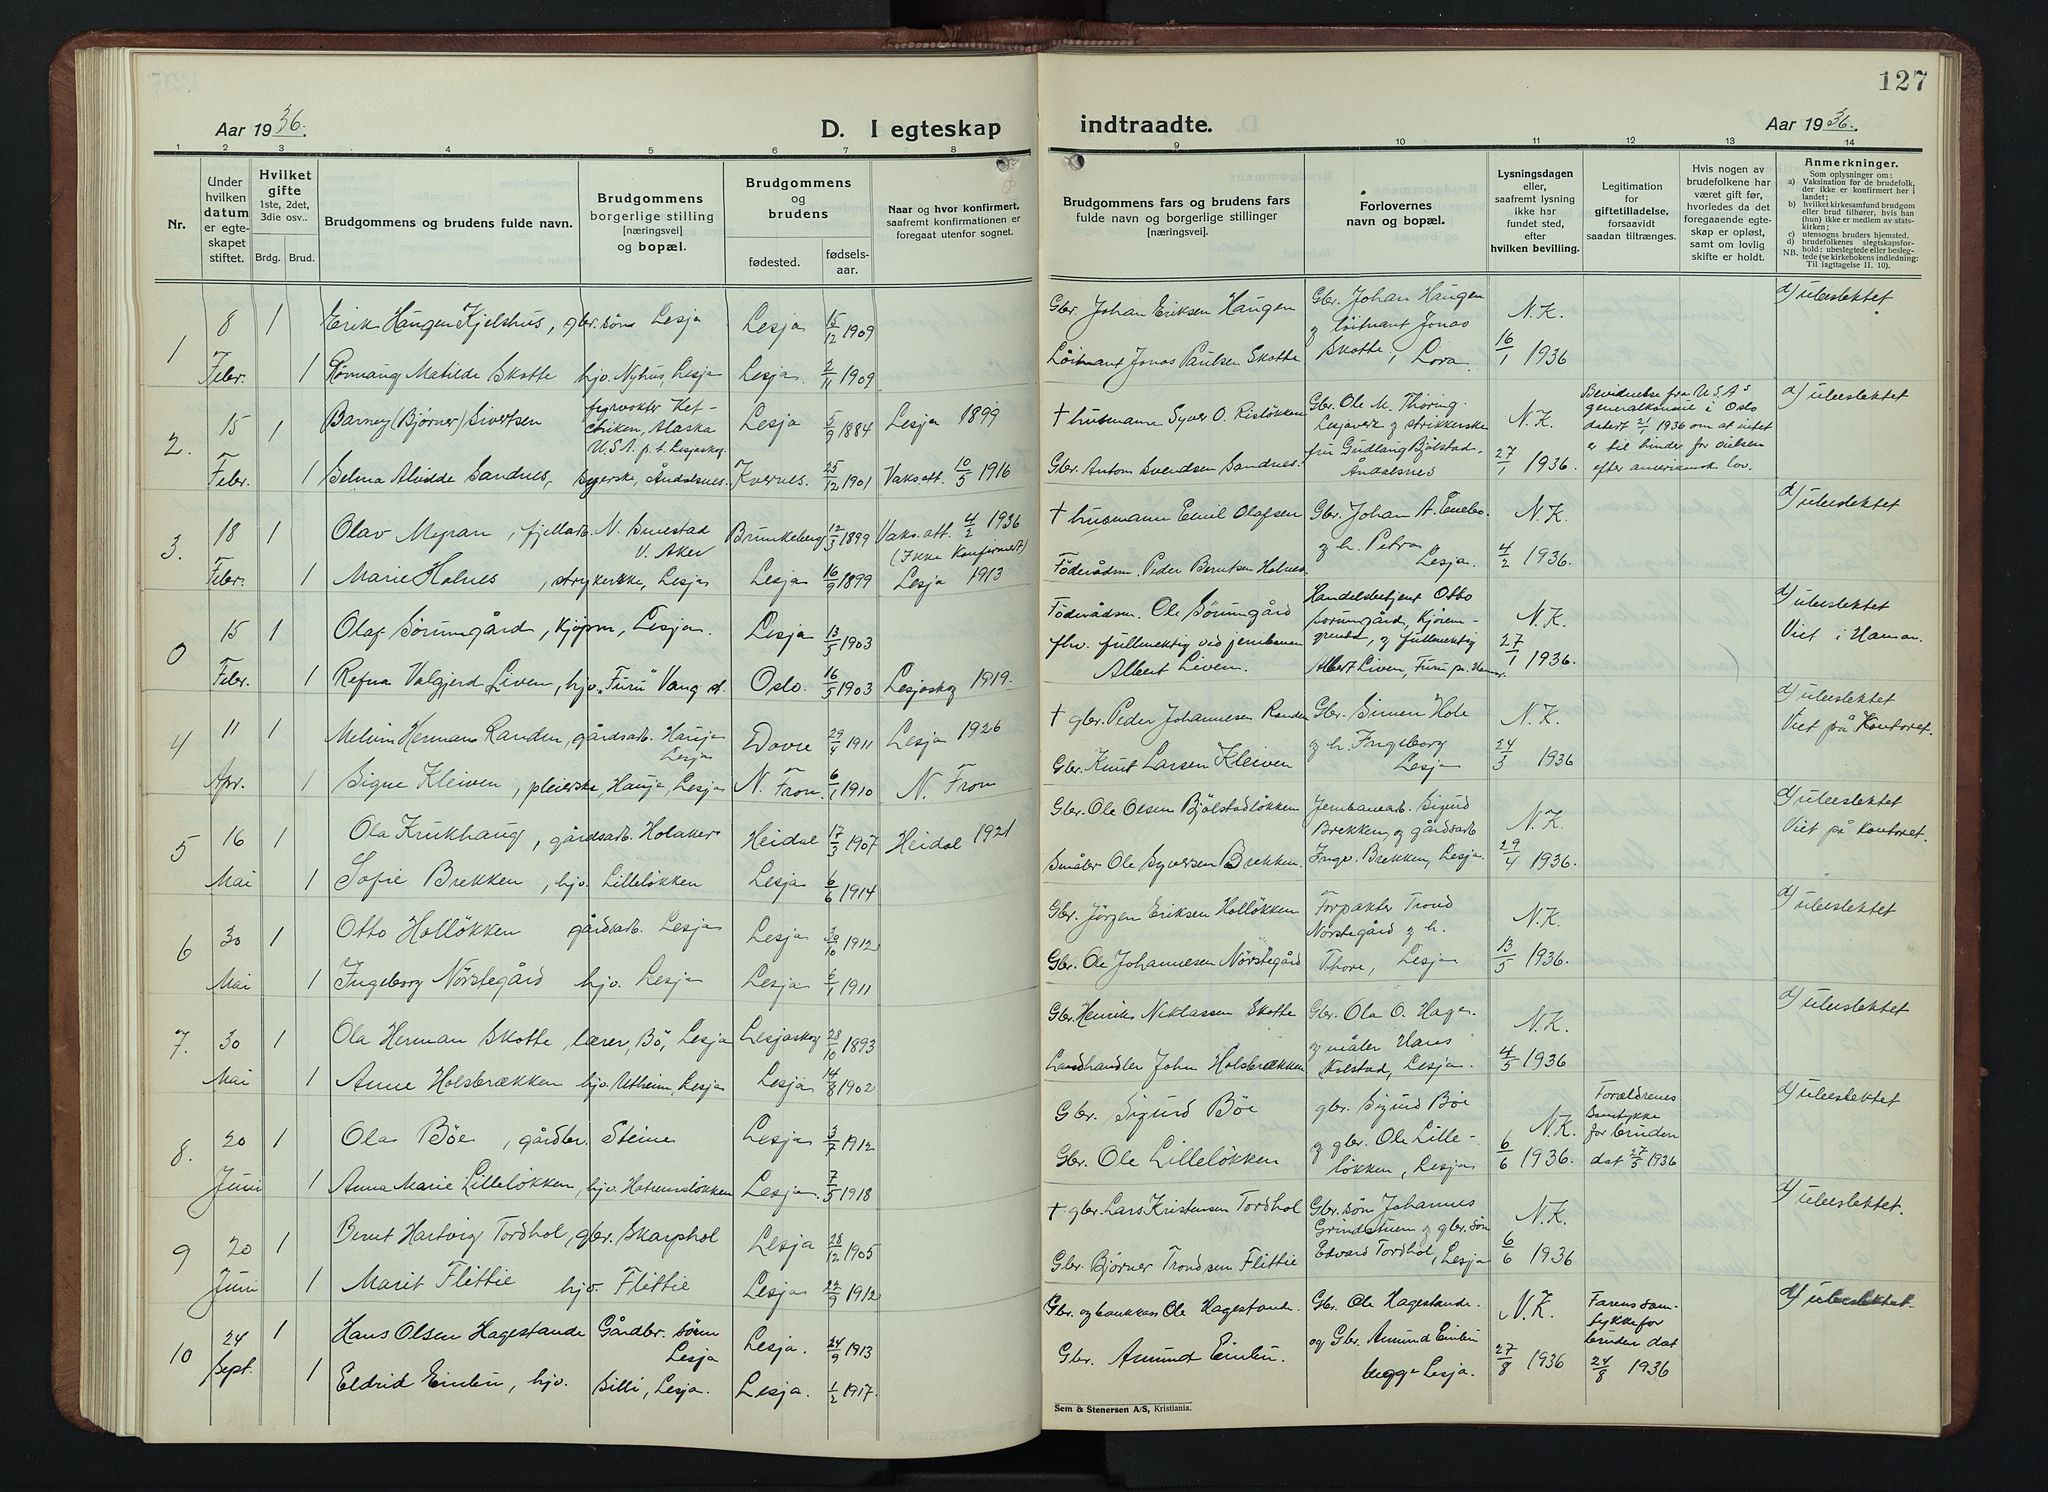 127
Aar 1936.
D. I egteskap
indtraadte.
Aar 1936.
1 2 3 4 5 6 7 8 9 10 11 12 13 14
Nr.
Under hvilken datum er egteskapet stiftet.
Hvilket gifte 1ste, 2det, 3die osv..
Brdg. Brud.
Brudgommens og brudens fulde navn.
Brudgommens borgerlige stilling [næringsvei] og bopæl.
Brudgommens og brudens
fødested.
fødselsaar.
Naar og hvor konfirmert, saafremt konfirmationen er foregaat utenfor sognet.
Brudgommens fars og brudens fars fulde navn og borgerlige stillinger [næringsvei].
Forlovernes navn og bopæl.
Lysningsdagen eller, saafremt lysning ikke har fundet sted, efter hvilken bevilling.
Legitimation for giftetilladelse, forsaavidt saadan tiltrænges.
Hvis nogen av brudefolkene har været gift før, hvorledes da det foregaaende egteskap er opløst, samt om lovlig skifte er holdt.
Anmerkninger.
Som oplysninger om:
a) Vaksination for de brudefolk, der ikke er konfirmert her i landet;
b) hvilket kirkesamfund brudgom eller brud tilhører, hvis han (hun) ikke er medlem av statskirken;
c) utensogns bruders hjemsted.
d) brudefolkenes slegtskapsforhold: ubeslegtede eller beslegtede (se kirkebokens indledning:
NB. Til iagttagelse II. 10).
1 8 Febr. 1 Erik Haugen Kjelshus, gbr. søn Lesja Lesja 15/12 1909 Gbr. Johan Eriksen Haugen Gbr. Johan Haugen N.K. d) ubeslektet
1 Matilde Skotte hjv. Nyhus, Lesja Lesja. 1909 Löitnant Jonas Paulsen Skotte og löitnant Jonas Skotte, Lora. 16/1 1936
2. 15 Febr. 1 Barney (Bjørner) Sivertsen fyrvokter Ketchiken, Alaska U.S.A. p.t. Lesjaskog Lesja 5/9 1884 Lesja 1899 † husmann Syver O. Risløkken Gbr. Ole M. Thöring. N.K. fra U.S.A's generalkonsul i Oslo datert 21/1 1936 om at intet er til hinder for vielsen efter amerikansk lov. d) ubeslektet
1 Selma Alvilde Sandnes, syerske, Åndalsnes. Kvernes. 25/12 1901 Vaks.att. 10/5 1916 Gbr. Anton Svendsen Sandnes. og strikkerske fru Gudlaug Bjølstad, Åndalsnes 27/1 1936.
3. 18 Febr. 1 Olav Myran, fjellarb. N. Smestad V. Aker Brunkeberg 12/3 1899 Vaks.att. 4/2 1936 (Ikke Konfirmert) † husmann Emil Olafsen Gbr. Johan A. Enebo. N.K. d) ubeslektet
1 Marie Holnes, strykerske, Lesja Lesja 16/9 1899 Lesja 1913 Föderådsm. Peder Berntsen Holnes. og h. Petra, Lesja. 4/2 1936.
0 15 Febr. 1 Olaf Sörumgård, kjøpm, Lesja. Lesja 13/5 1903 Föderådsm. Ole Sörumgård Handelsbetjent Otto Sorumgård, N.K. d) ubeslektet
Viet i Hamar.
1 Refna Valgjerd Liven, hjv. "Furu" Vang Oslo. 16/5 1903 Lesjaskog 1919. fhv. fullmektig ved jernbanen Albert Liven. og fullmektig Albert Liven, Furu pr. Hamar. 27/1 1936.
4 11 Apr. 1 Melvin Herman Randen, gårdsarb. Hauje Lesja Dovre 29/4 1911 Lesja 1926 † gbr. Peder Johannesen Randen Gbr. Simen Hole N.K. d) ubeslektet
Viet på Kontoret.
1 Signe Kleiven, pleierske, Hauje, Lesja N. Fron. 6/1 1910 N. Fron Gbr. Knut Larsen Kleiven og h. Ingeborg Lesja 24/3 1936
5 16 Mai 1 Ola Krukhaug, gårdsarb. Holaker Heidal 17/3 1907 Heidal 1921 Gbr. Ole Olsen Bjölstadløkken Jernbanearb. Sigurd Brekken og gårdsarb. N.K. d) ubeslektet
Viet på kontoret.
1 Sofie Brekken, hjv. Lilleløkken Lesja 6/6 1914 Småbr. Ole Syversen Brekken. Inge. Brekken, Lesja. 29/4 1936.
6 30 Mai 1 Otto Holløkken gårdsarb. Lesja Lesja 30/10 1912 Gbr. Jörgen Eriksen Holløkken Forpakter Trond Nørstegård og h. N.K. d) ubeslektet
1 Ingeborg Nørstegård hjv. Lesja Lesja 6/1 1911 Gbr. Ole Johannesen Nørstegård Thore, Lesja 13/5 1936.
7. 30 Mai 1 Ola Herman Skotte lærer, Bö, Lesja Lesjaskog 28/10 1893 Gbr. Henrik Niklassen Skotte Gbr. Ola O. Hage. N.K. d) ubeslektet
1 Anne Holsbrækken hjv. Utheim, Lesja Lesja 14/8 1902 Landhandler John Holsbrækken og maler Hans Kolstad, Lesja. 4/5 1936
8. 20 Juni 1 Ola Böe, gårdbr. Steine Lesja 3/7 1912 Gbr. Sigurd Böe gbr. Sigurd Böe N.K. Forældrenes Samtykke for bruden dat 27/5 1936 d) ubeslektet
1 Anna Marie Lilleløkken, hjv. Hatremsløkken Lesja. 7/5 1918 Gbr. Ole Lilleløkken og gbr. Ole Lilleløkken, Lesja 6/6 1936.
9 20 Juni 1 Bernt Hartvig Tordhol, gbr. Skarphol Lesja 28/12 1905 † gbr. Lars Kristensen Tordhol Gbr. søn Johannes Grindstuen og gbr. søn N.K. d) ubeslektet.
1 Marit Flittie hjv. Flittie Lesja 22/9 1912 Gbr. Björner Trondsen Flittie Edvard Tordhol, Lesja 6/6 1936
10 24 Sept. 1 Hans Olsen Hagestande Gårdbr. sönn Lesja Lesja. 24/9 1913 Gbr. og bankkass Ole Hagestande. Gbr. Ole Hagestande. N.K. Farens samtykke for bruden dat 24/8 1936 d) ubeslektet.
1 Eldrid Einbu, hjv. Silli, Lesja. Lesja. 1/2 1917. Gbr. Amund Einbu. og Gbr. Amund Einbu begge Lesja. 27/8 1936
Sem & Stenersen A/S, Kristiania.